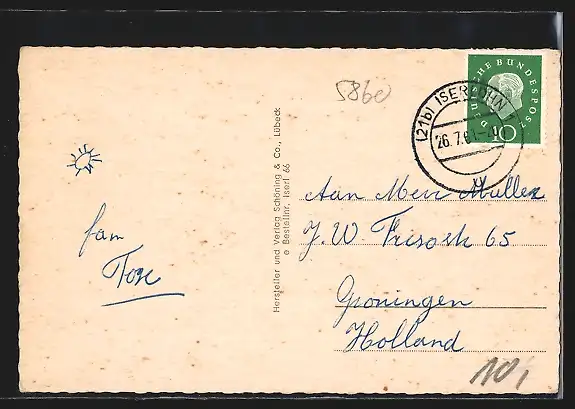 5860
DEUTSCHE BUNDESPOST
10
(21b) ISERLOHN
26.7.6
Hersteller und Verlag Schöning & Co., Lübeck
e Bestellnr. Iserl 66
fam
Aan Mevr Muller
J.W 65
Groningen
Holland
10,